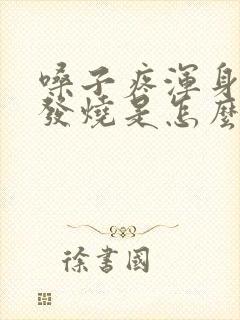 嗓子疼渾身
發燒是怎麼
徐書國